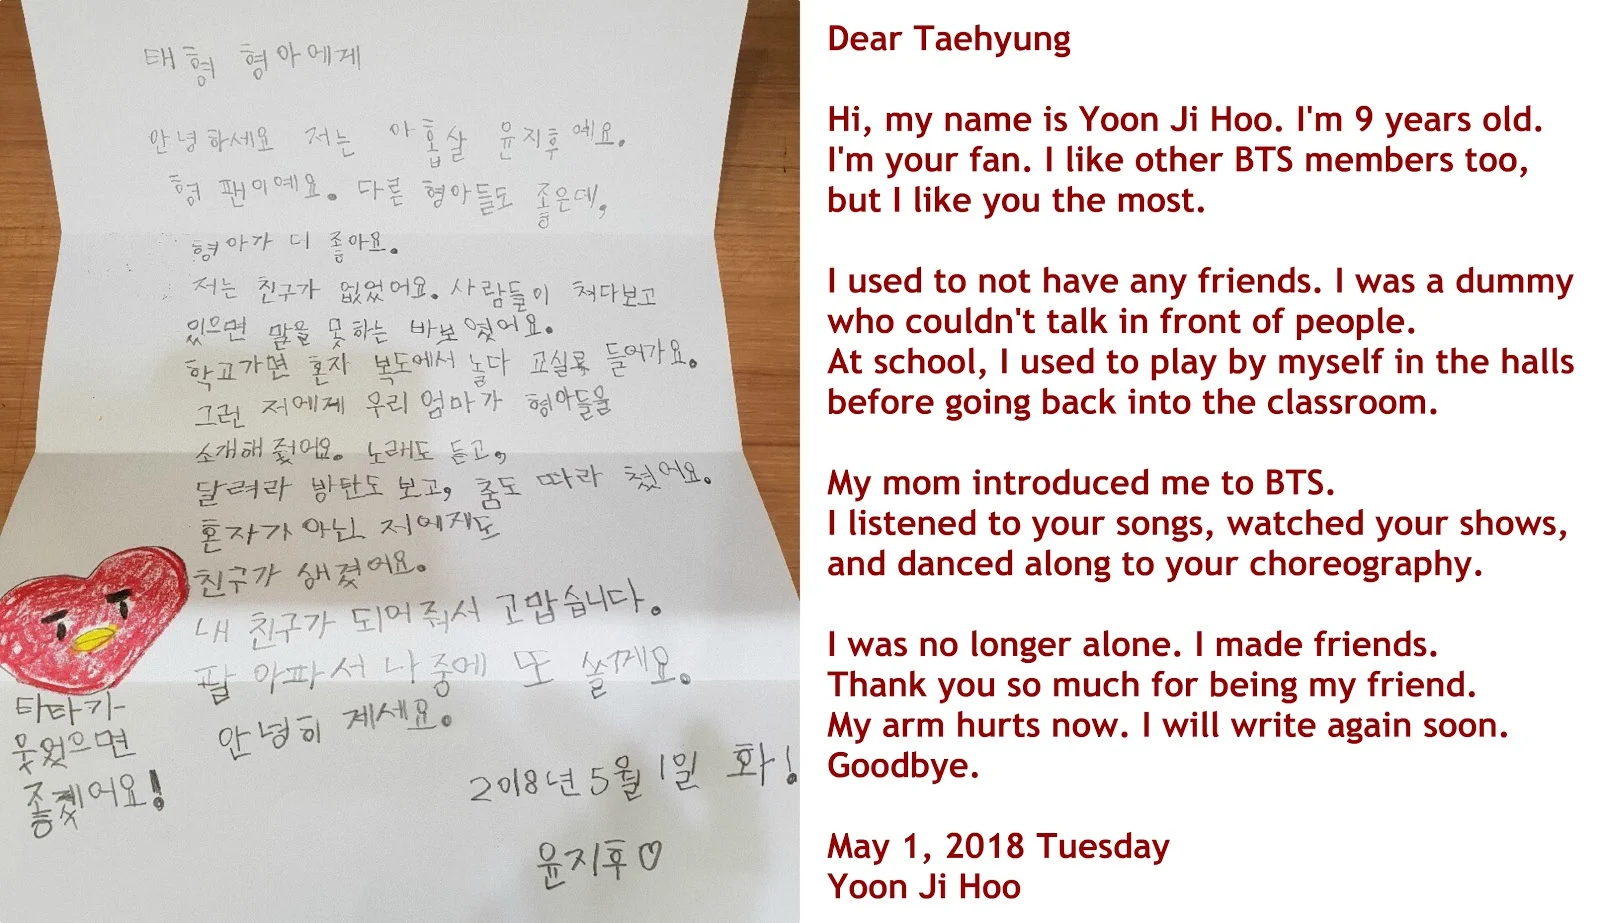 태형 형아에게
안녕하세요 저는 아홉살 윤지후예요.
형 팬이예요. 다른 형아들도 좋은데,
형아가 더 좋아요.
저는 친구가 없었어요. 사람들이 쳐다보고
있으면 말을 못하는 바보였어요.
학교가면 혼자 복도에서 놀다 교실로 들어가요.
그런 저에게 우리 엄마가 형아들을
소개해줬어요. 노래도 듣고,
달려라 방탄도 보고, 춤도 따라 췄어요.
혼자가 아닌 저에게도
친구가 생겼어요.
내 친구가 되어줘서 고맙습니다.
팔 아파서 나중에 또 쓸게요.
안녕히 계세요.
2018년 5월 1일 화!
윤지후♡
타타가
웃었으면
좋겠어요!
Dear Taehyung
Hi, my name is Yoon Ji Hoo. I'm 9 years old.
I'm your fan. I like other BTS members too,
but I like you the most.
I used to not have any friends. I was a dummy
who couldn't talk in front of people.
At school, I used to play by myself in the halls
before going back into the classroom.
My mom introduced me to BTS.
I listened to your songs, watched your shows,
and danced along to your choreography.
I was no longer alone. I made friends.
Thank you so much for being my friend.
My arm hurts now. I will write again soon.
Goodbye.
May 1, 2018 Tuesday
Yoon Ji Hoo